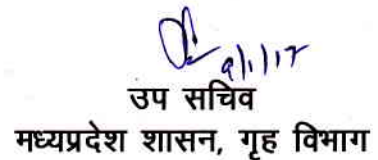 9/1/17
उप सचिव
मध्यप्रदेश शासन, गृह विभाग